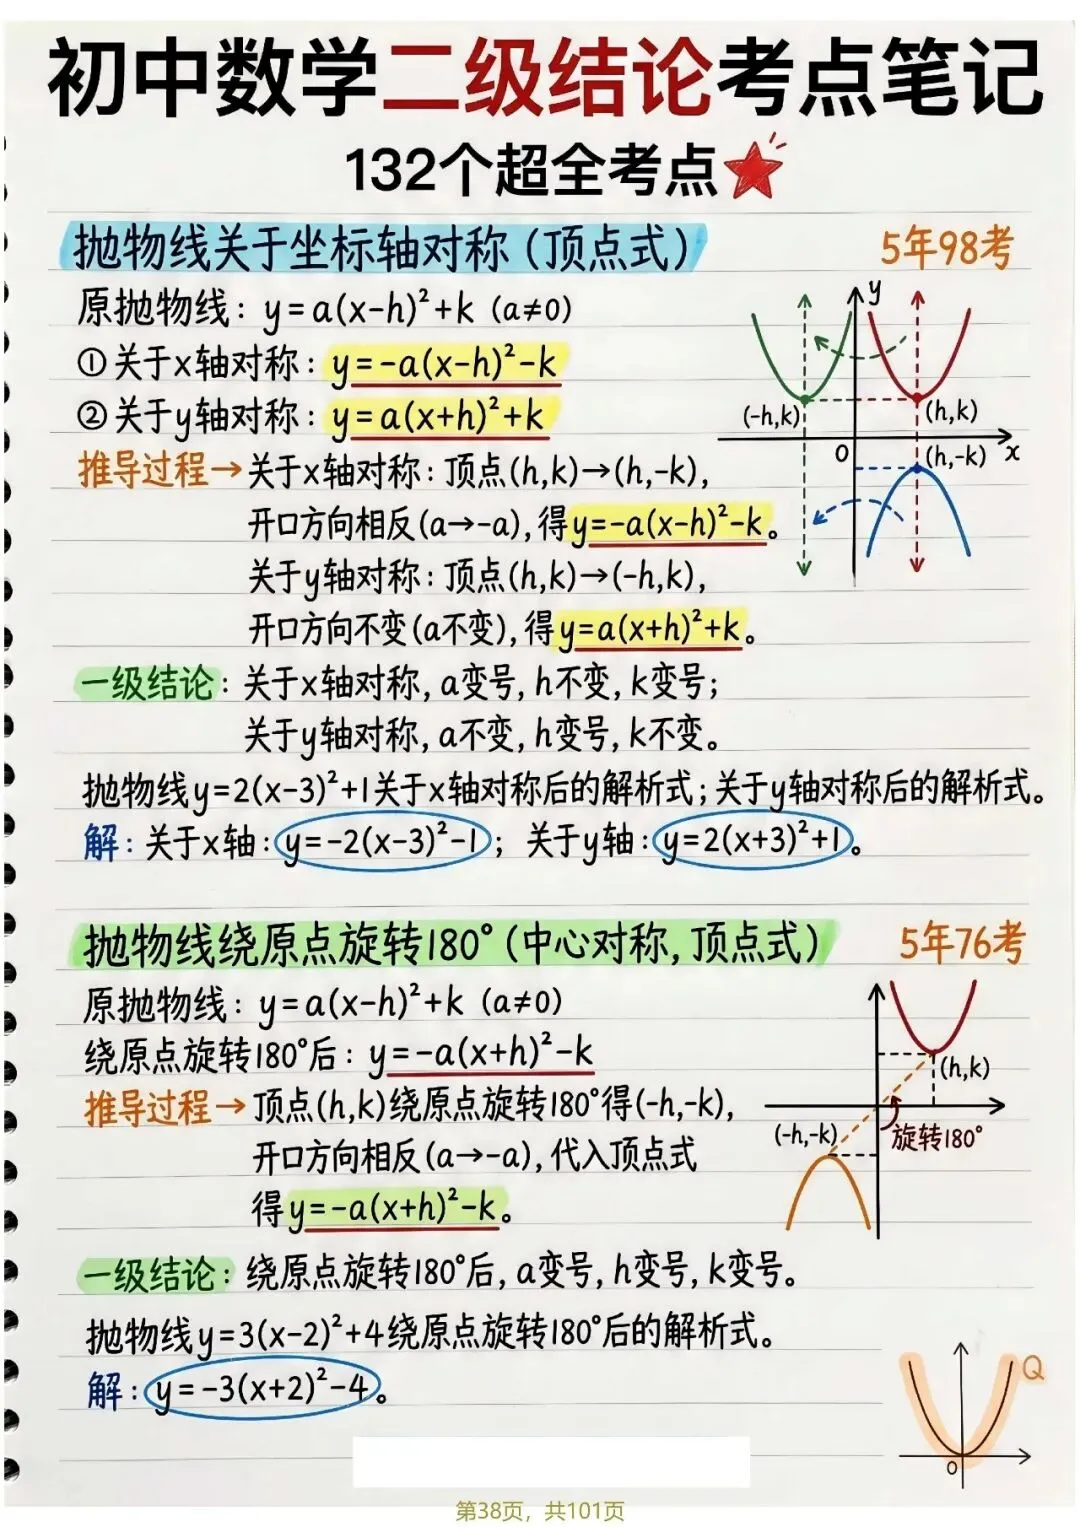 初中数学二级结论考点笔记
132个超全考点
抛物线关于坐标轴对称（顶点式）
5年98考
原抛物线：y=a(x-h)²+k (a≠0)
①关于x轴对称：y=-a(x-h)²-k
②关于y轴对称：y=a(x+h)²+k
推导过程→关于x轴对称：顶点(h,k)→(h,-k),
开口方向相反(a→-a),得y=-a(x-h)²-k。
关于y轴对称：顶点(h,k)→(-h,k),
开口方向不变(a不变),得y=a(x+h)²+k。
y
(-h,k)
(h,k)
O
(h,-k)
x
一级结论：关于x轴对称,a变号,h不变,k变号;
关于y轴对称,a不变,h变号,k不变。
抛物线y=2(x-3)²+1关于x轴对称后的解析式;关于y轴对称后的解析式。
解：关于x轴：y=-2(x-3)²-1；关于y轴：y=2(x+3)²+1。
抛物线绕原点旋转180°(中心对称,顶点式)
5年76考
原抛物线：y=a(x-h)²+k (a≠0)
绕原点旋转180°后：y=-a(x+h)²-k
推导过程→顶点(h,k)绕原点旋转180°得(-h,-k),
开口方向相反(a→-a),代入顶点式
得y=-a(x+h)²-k。
(h,k)
(-h,-k)
旋转180°
一级结论：绕原点旋转180°后,a变号,h变号,k变号。
抛物线y=3(x-2)²+4绕原点旋转180°后的解析式。
解：y=-3(x+2)²-4。
Q
O
第38页，共101页